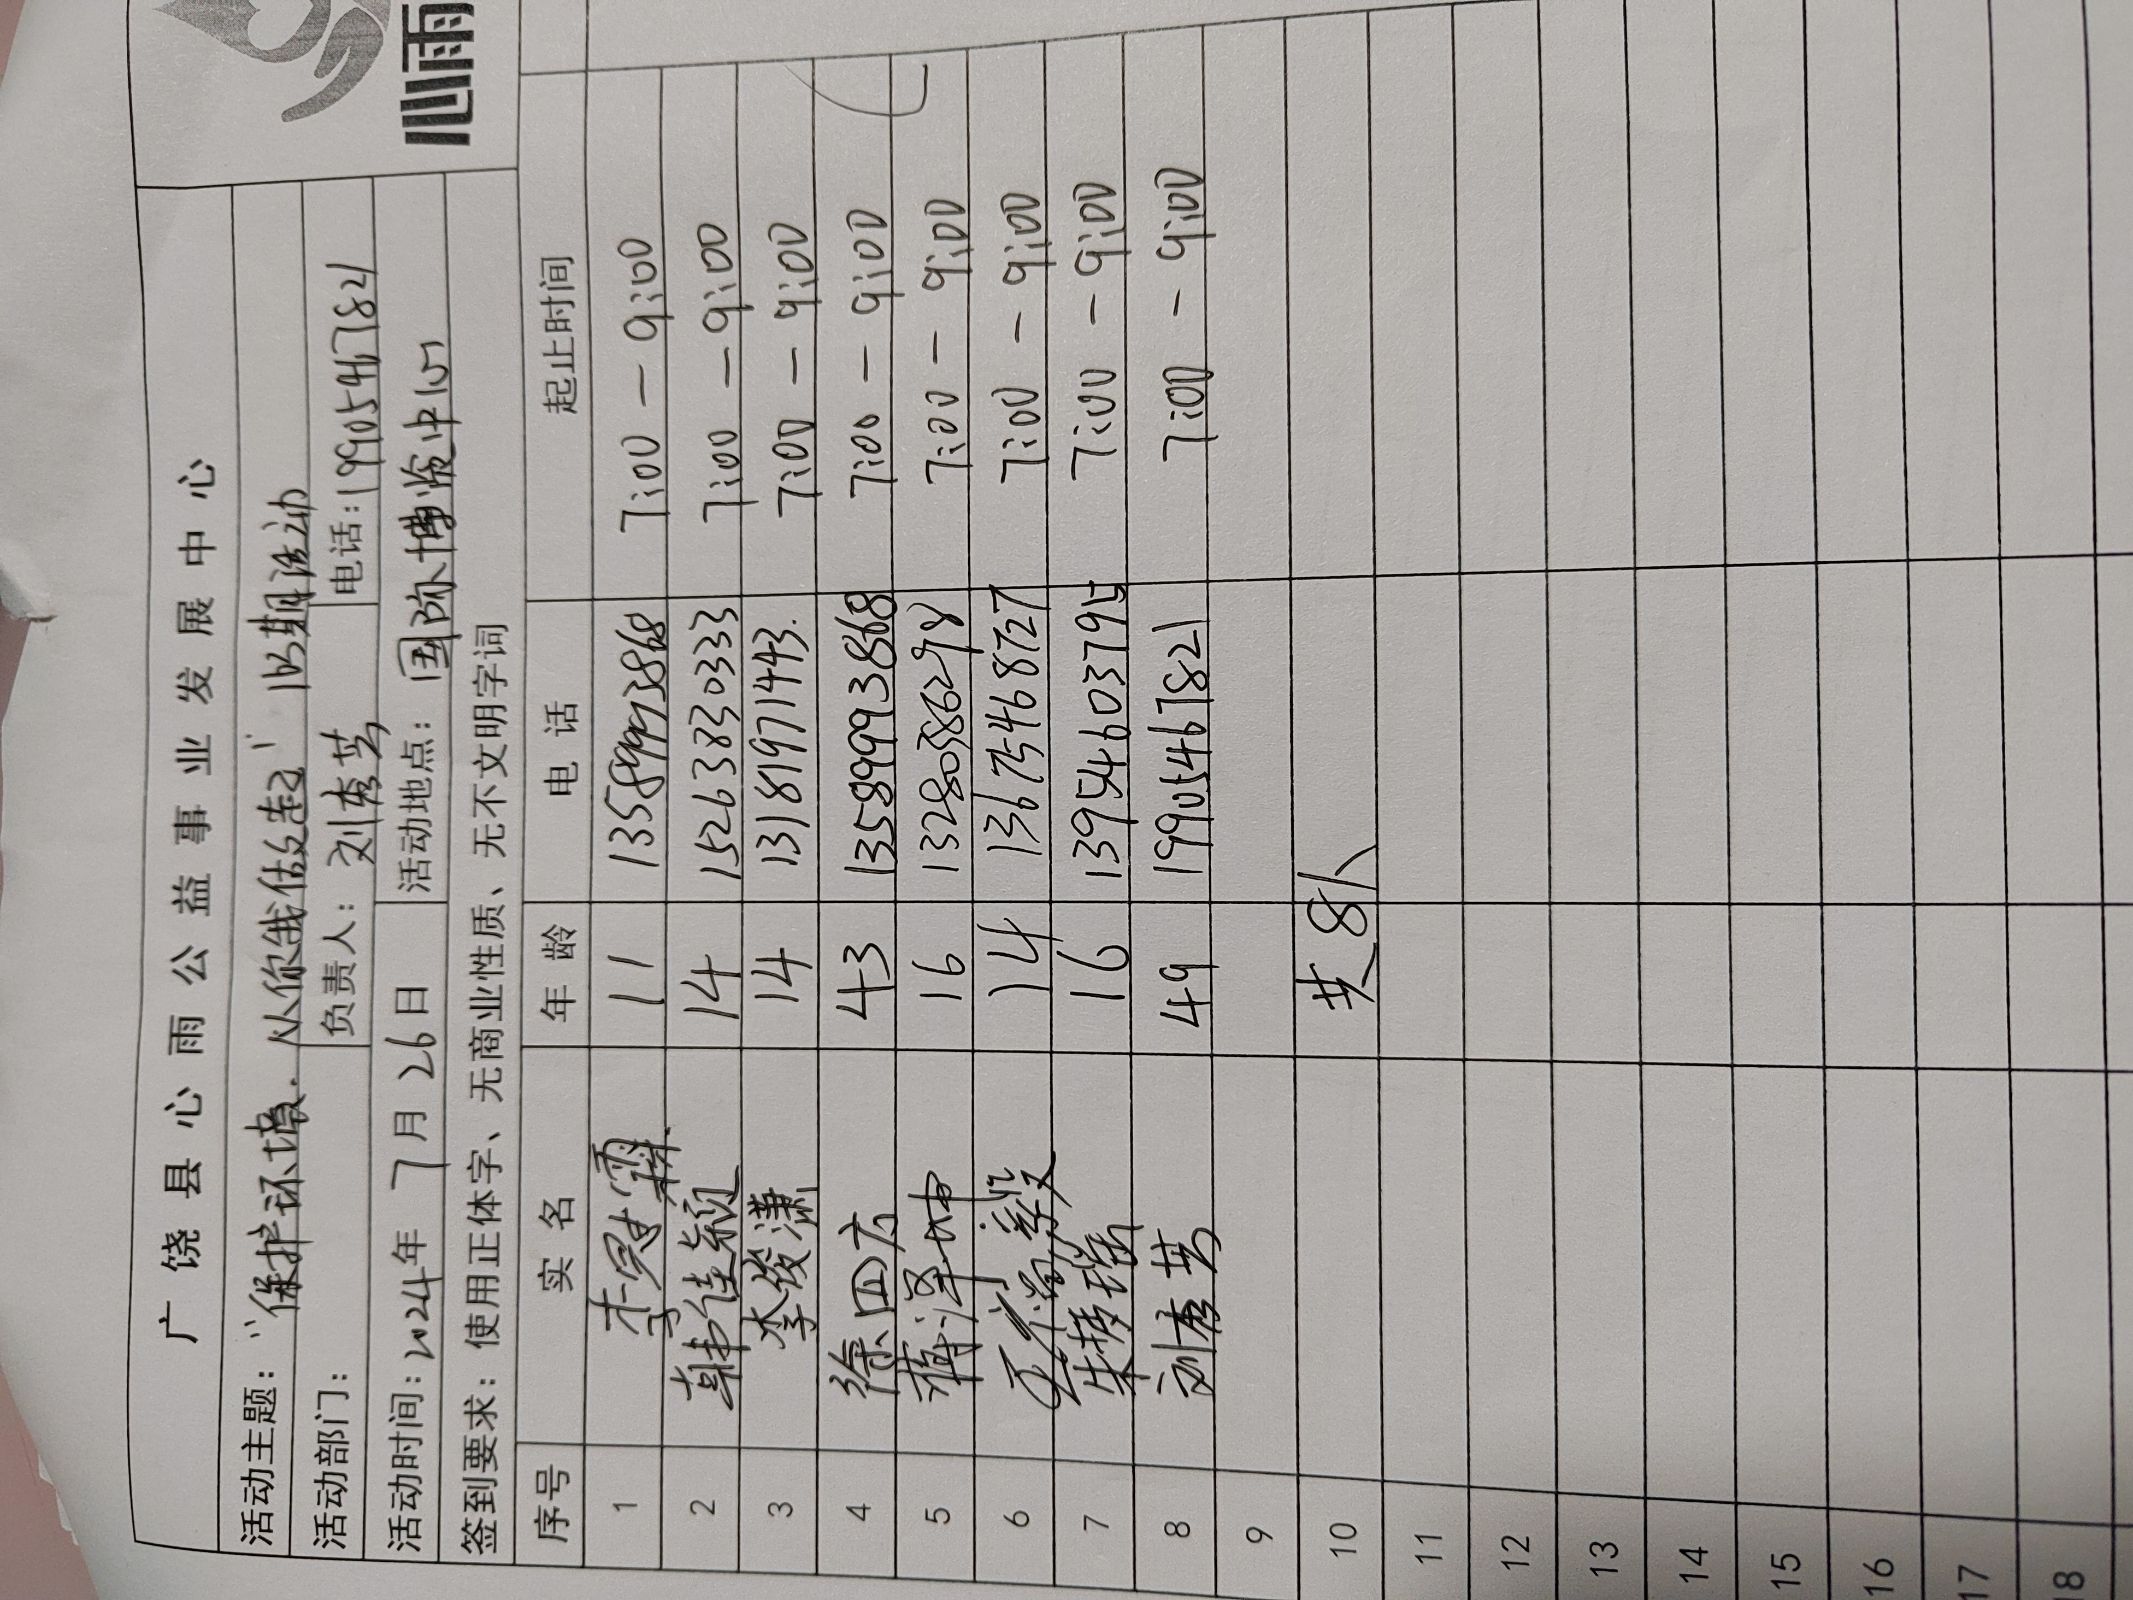 广饶县心雨公益事业发展中心
心雨
活动主题：“保护环境.从你我做起”165期活动
活动部门： 负责人：刘秀芸 电话：19905467821
活动时间：2024年7月26日 活动地点：国际博览中心
签到要求：使用正体字、无商业性质、无不文明字词
序号 实名 年龄 电话 起止时间
1 李 霖 11 13589993868 7:00-9:00
2 韩佳颖 14 15263830333 7:00-9:00
3 李俊潇 14 13181971443. 7:00-9:00
4 徐四方 43 13589993868 7:00-9:00
5 蒋泽坤 16 13280386298 7:00-9:00
6 14 13675468727 7:00-9:00
7 朱梦瑶 16 13954603795 7:00-9:00
8 刘秀芸 49 19905467821 7:00-9:00
9
10 共8人
11
12
13
14
15
16
17
18